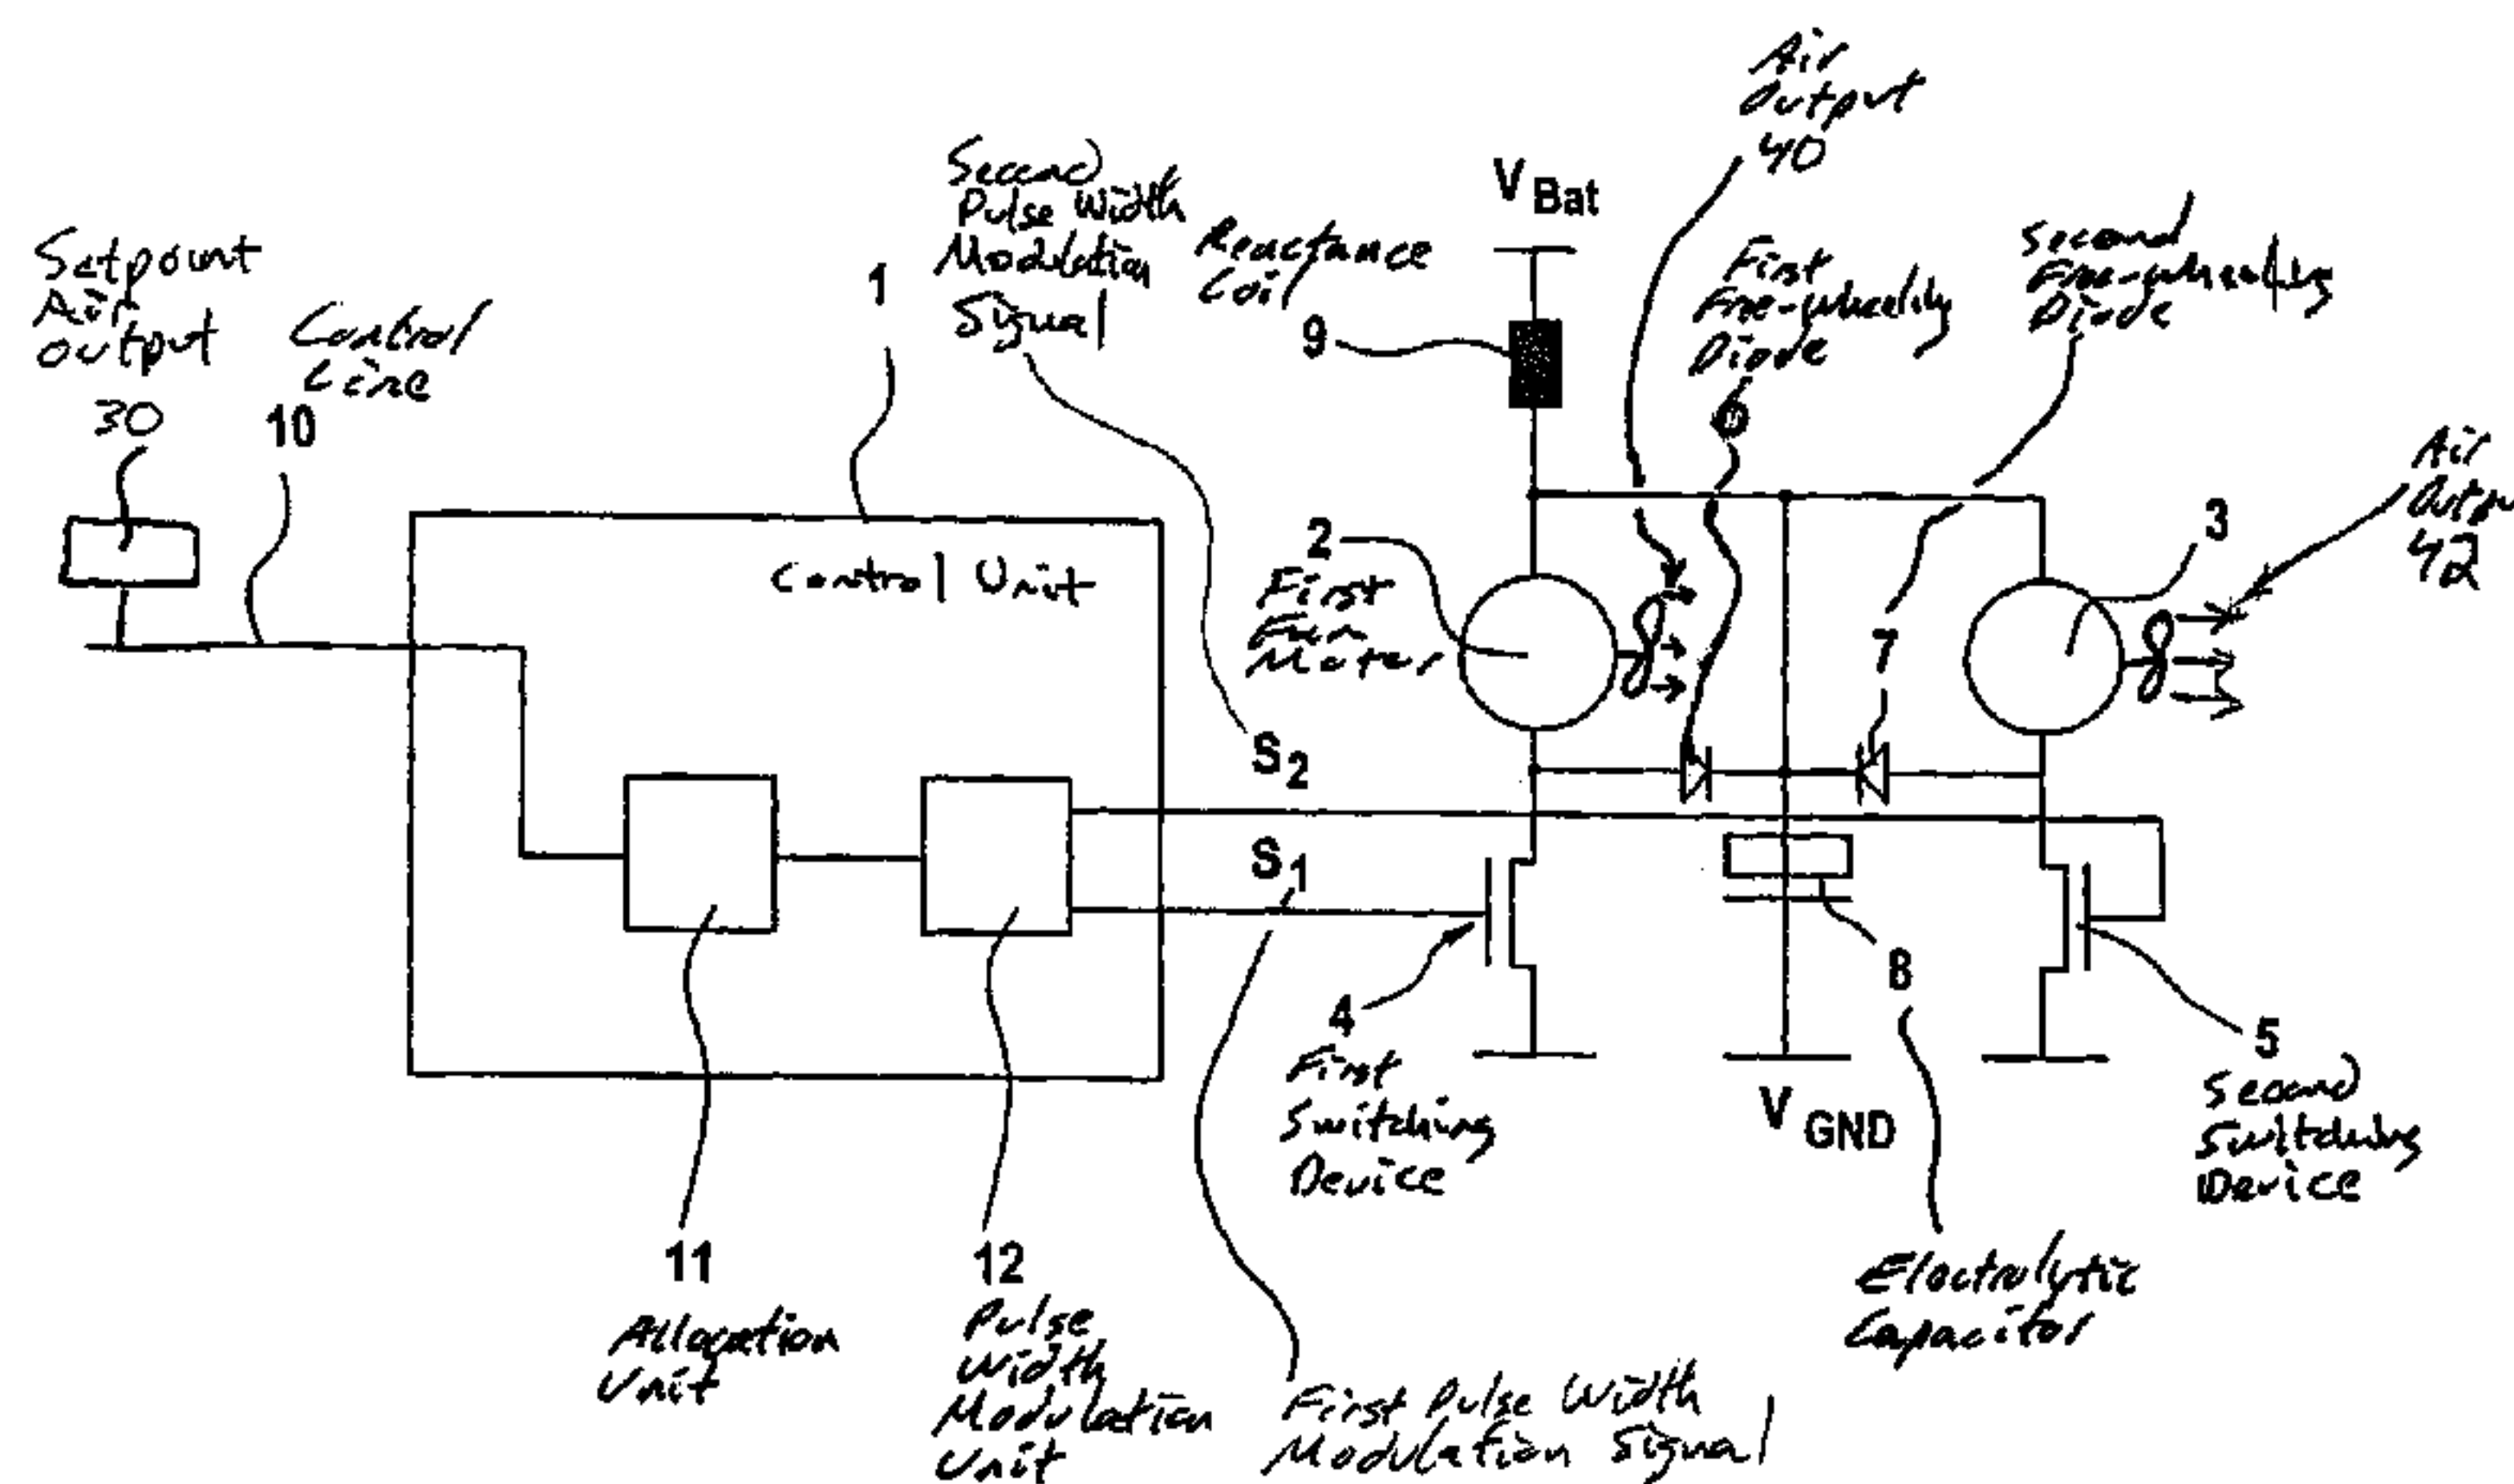 Setpoint
Air
Output
30
Control
Line
10
1
Second
Pulse Width
Modulation
Signal
Reactance
Coil
9
V Bat
Air
Output
40
First
Free-wheeling
Diode
6
Second
Free-wheeling
Diode
7
Air
42
3
Control Unit
2
First
Fan
Motor
S2
S1
4
First
Switching
Device
8
Electrolytic
Capacitor
V GND
5
Second
Switching
Device
11
Allocation
Unit
12
Pulse
Width
Modulation
Unit
First Pulse Width
Modulation Signal